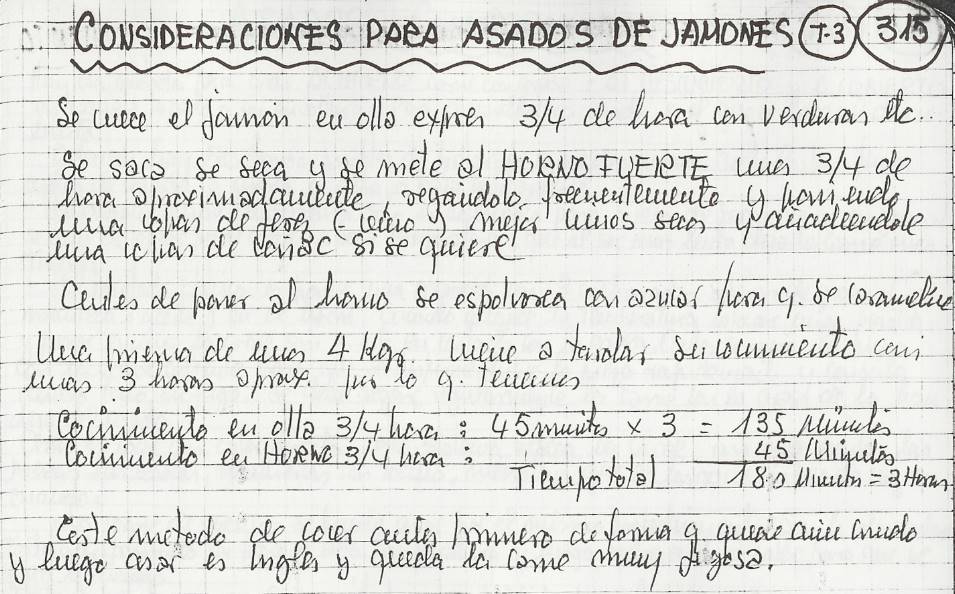 CONSIDERACIONES PARA ASADOS DE JAMONES T-3 315
Se cuece el jamón en olla expres 3/4 de hora con verduras etc..
Se saca se seca y se mete al HORNO FUERTE unos 3/4 de
hora aproximadamente, regandolo frecuentemente y poniendo
una copas de jerez (vino) mejor vinos secos y añadiendole
una copas de coñac si se quiere
Antes de poner al horno se espolvorea con azucar para q. se caramelice
Una pierna de unos 4 Kgr. viene a tardar su cocimiento casi
unas 3 horas aprox. por lo q. tenemos
Cocimiento en olla 3/4 hora : 45 minutos x 3 = 135 Minutos
Cocimiento en HORNO 3/4 hora : 45 Minutos
Tiempo total 180 Minutos = 3 Horas
Este metodo de cocer antes primero de forma q. quede aun crudo
y luego asar es Ingles y queda la carne muy jugosa.